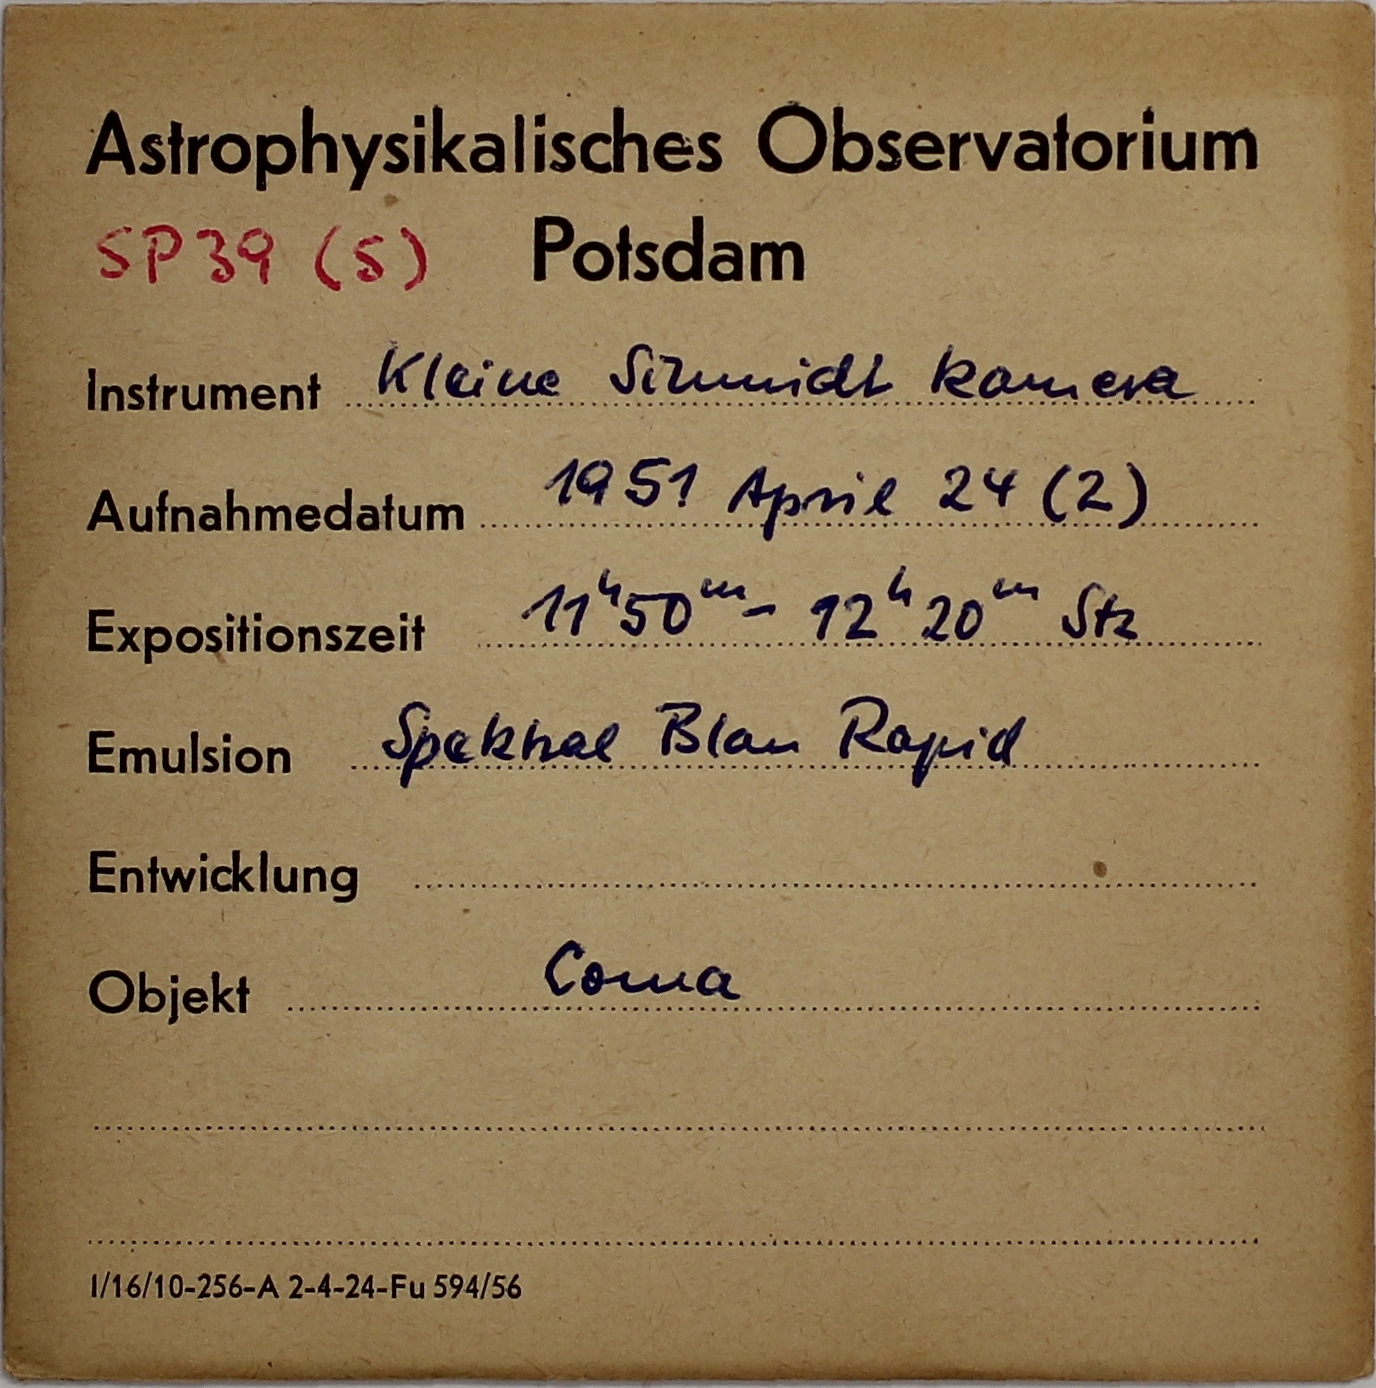 Astrophysikalisches Observatorium
SP39 (5) Potsdam
Instrument Kleine Schmidt kamera
Aufnahmedatum 1951 April 24 (2)
Expositionszeit 11ʰ50ᵐ - 12ʰ20ᵐ Stz
Emulsion Spektral Blau Rapid
Entwicklung
Objekt Coma
I/16/10-256-A 2-4-24-Fu 594/56